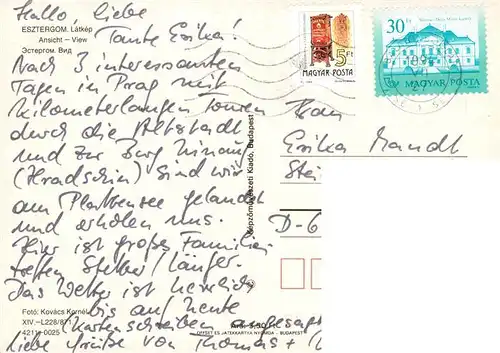 Hallo, liebe
Tante Erika!
Nach 3 interessanten
Tagen in Prag mit
kilometerlangen Touren
durch die Altstadt
und zur Burg hinauf
(Hradschin) sind wir
am Plattensee gelandet
und erholen uns.
Hier ist großes Familien-
treffen
Das Wetter ist herrlich
bis auf heute
(Kartenschreiben angesagt
Liebe Grüße von Thomas +
ESZTERGOM. Látkép
Ansicht – View
Эстергом. Вид
Fotó: Kovács Kornél
XIV.–L228/871
4211 0025
Képzőművészeti Kiadó, Budapest
OFFSET ÉS JÁTÉKKÁRTYA NYOMDA · BUDAPEST
5Ft
MAGYAR POSTA
30 Ft
MAGYAR POSTA
Frau
Erika Mandt
D-6